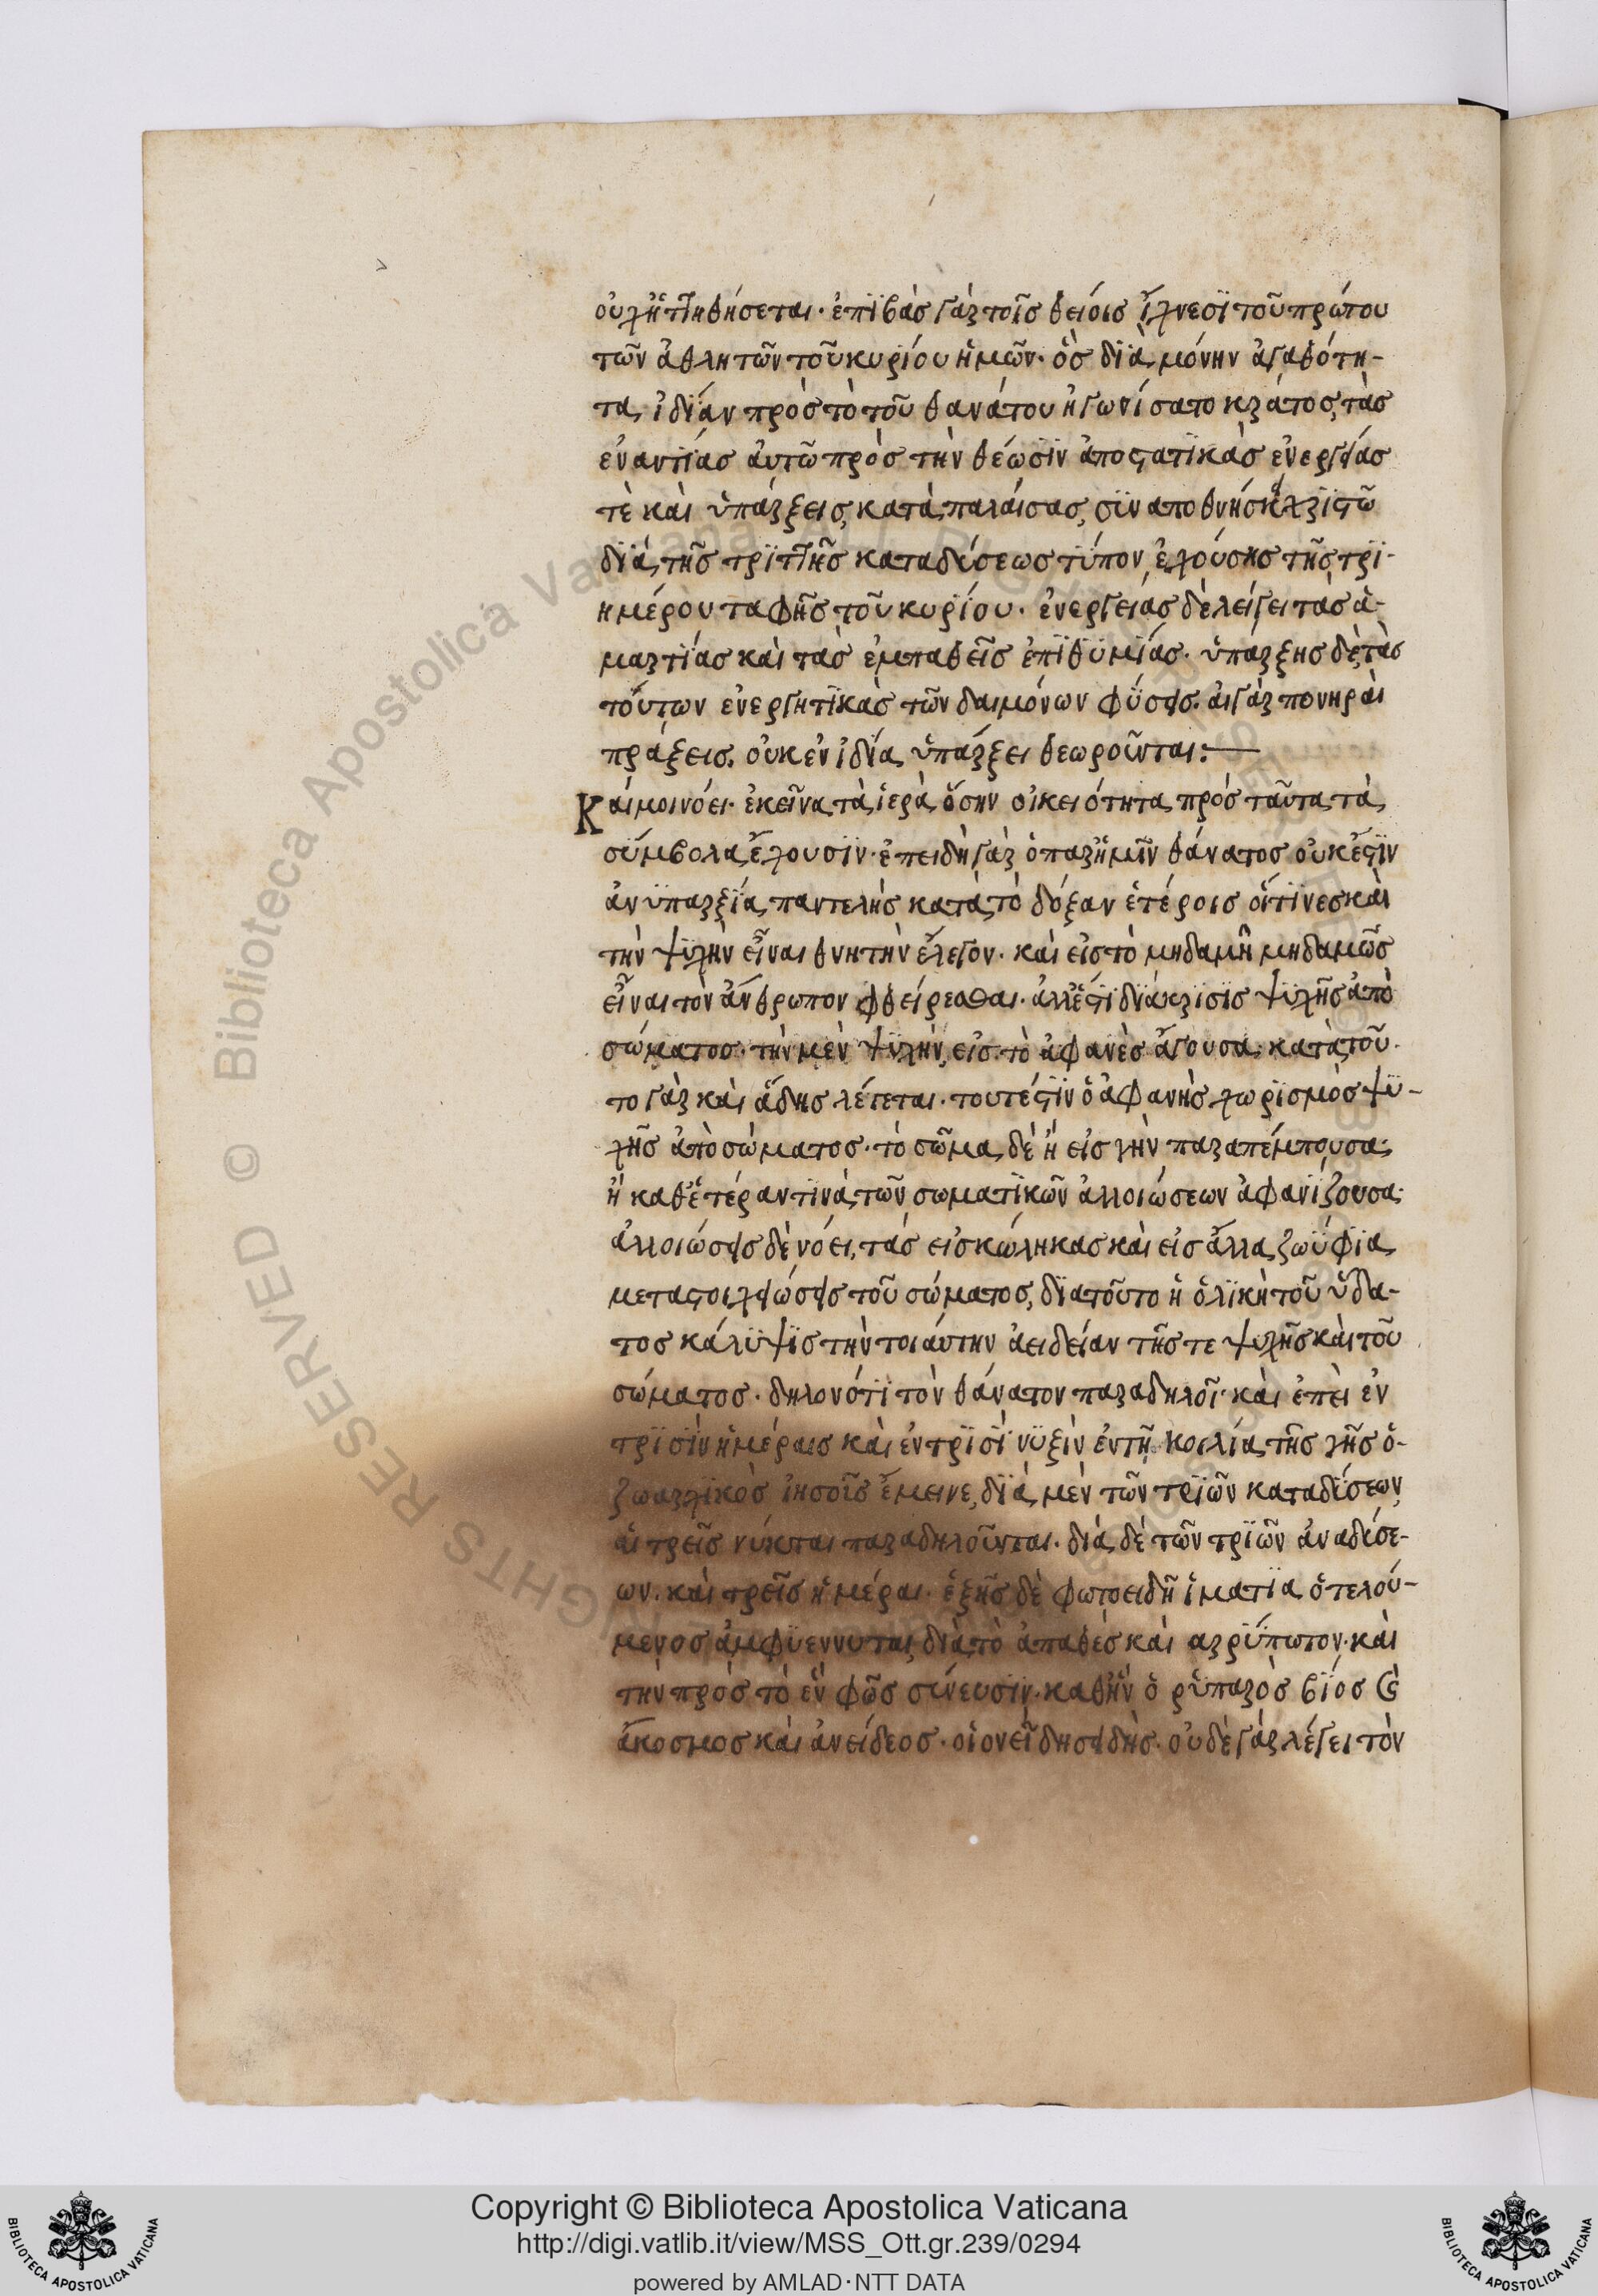 οὐχ ἡττηθήσεται· ἐπϊβὰς γὰρ τοῖς θείοις ἴχνεσϊ τοῦ πρώτου
τῶν ἀθλητῶν τοῦ κυρίου ἡμῶν· ὃς δϊὰ μόνην ἀγαθότη-
τα ἰδίαν πρὸς τὸ τοῦ θανάτου ἠγωνίσατο κράτος, τὰς
ἐναντίας ἀυτῶ πρὸς τὴν θέωσϊν ἀποστατϊκὰς ἐνεργείας
τὲ καὶ ὑπάρξεις, καταπαλάισας, σϋναποθνήσκει χριστῶ
δϊὰ τῆς τρϊττῆς καταδύσεως τύπον ἐχούσης τῆς τρϊ-
ημέρου ταφῆς τοῦ κυρίου· ἐνεργείας δὲ λέγει τὰς ἁ-
μαρτίας καὶ τὰς ἐμπαθεῖς ἐπϊθϋμίας· ὑπάρξης δὲ τὰς
τούτων ἐνεργητϊκὰς τῶν δαιμόνων φύσεις. ἁι γὰρ πονηρὰι
πράξεις. οὐκ ἐν ἰδία ὑπάρξει θεωροῦνται:—
Κάι μοι νόει· ἐκεῖνα τὰ ἱερὰ ὅσην οἰκειότητα πρὸς ταῦτα τὰ
σύμβολα ἔχουσϊν· ἐπειδὴ γὰρ ὁ παρ' ἡμῖν θάνατος οὐκ ἔστϊν
ἀνϋπαρξία παντελὴς κατὰ τὸ δόξαν ἑτέροις οἵτϊνες κὰι
τὴν ψϋχὴν εἶναι θνητὴν ἔλεγον· κὰι εἰς τὸ μηδαμῆ μηδαμῶς
εἶναι τὸν ἄνθρωπον φθείρεσθαι· ἀλλ' ἔστϊ δϊάκρϊσϊς ψϋχῆς ἀπὸ
σώματος· τὴν μὲν ψϋχὴν, εἰς τὸ ἀφανὲς ἄγουσα· κατὰ τοῦ-
το γὰρ κὰι ἅδης λέγεται· τουτέστϊν ὁ ἀφανὴς χωρϊσμὸς ψϋ-
χῆς ἀπὸ σώματος· τὸ σῶμα δὲ ἢ εἰς γῆν παραπέμπουσα·
ἢ καθ' ἑτέραν τϊνὰ τῶν σωματϊκῶν ἀλλοιώσεων ἀφανίζουσα·
ἀλλοιώσεις δὲ νόει, τάς εἰς κώληκας κὰι εἰς ἄλλα ζωΰφϊα
μεταστοιχειώσεις τοῦ σώματος, δϊατοῦτο ἡ ὁλϊκὴ τοῦ ὕδα-
τος κάλϋψϊς τὴν τοιάυτην ἀειδείαν τῆς τε ψυχῆς κὰι τοῦ
σώματος· δηλονότϊ τὸν θάνατον παραδηλοῖ· κὰι ἐπεὶ ἐν
τρϊσϊν ἡμέραις κὰι ἐν τρϊσὶ νϋξὶν ἐν τῆ κοιλία τῆς γῆς ὁ
ζωαρχϊκὸς ἰησοῦς ἔμεινε, δϊὰ μὲν τῶν τρϊῶν καταδύσεων
ἁι τρεῖς νύκται παραδηλοῦνται· δϊὰ δὲ τῶν τρϊῶν ἀναδύσε-
ων. κὰι τρεῖς ἡμέραι· ἑξῆς δὲ φωτοειδῆ ἱματϊα ὁ τελού-
μενος ἀμφϊέννυται, δϊὰ τὸ ἀπαθὲς κὰι αρρύπωτον· κὰι
τὴν πρὸς τὸ ἓν φῶς σύνευσϊν· καθ' ἣν ὁ ῥϋπαρὸς βίος κὰι
ἄκοσμος κὰι ἀνείδεος· οἱονεὶ δησειδὴς· οὐδὲ γὰρ λέγει τὸν
Copyright © Biblioteca Apostolica Vaticana
http://digi.vatlib.it/view/MSS_Ott.gr.239/0294
powered by AMLAD·NTT DATA